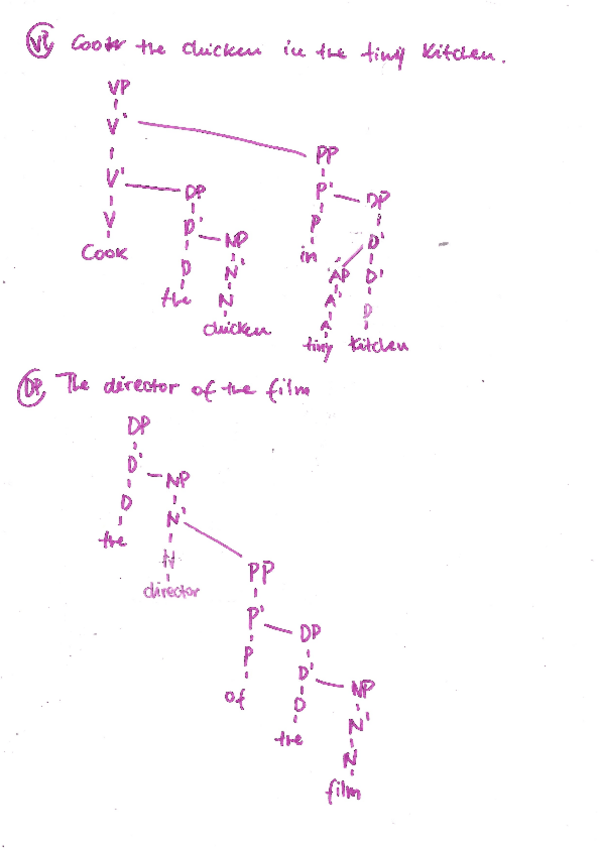 VP Cook the chicken in the tiny kitchen.
VP
V'
PP
V' DP P' DP
V D' NP P D'
Cook D N' in AP D'
the N A' D
chicken A
tiny kitchen
DP The director of the film
DP
D' NP
D N'
the N
director PP
P' DP
P D' NP
of D N'
the N
film